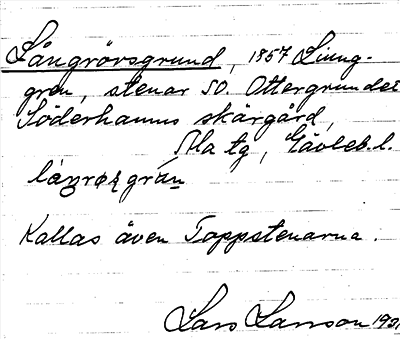 Långrörsgrund, 1857 Ljung-
gren, stenar SO. Ottergrundet
Söderhamns skärgård,
Ala tg, Gävleb. l.
Kallas även Toppstenarna.
Lars Larsson